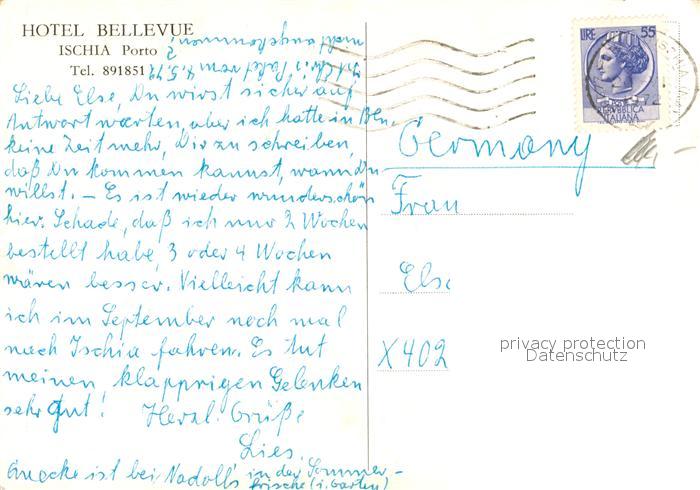 HOTEL BELLEVUE
ISCHIA Porto
Tel. 891851
Liebe Else, Du wirst sicher auf
Antwort warten, aber ich hatte in Bln.
keine Zeit mehr, Dir zu schreiben,
daß Du kommen kannst, wann Du
willst. – Es ist wieder wunderschön
hier. Schade, daß ich nur 2 Wochen
bestellt habe, 3 oder 4 Wochen
wären besser. Vielleicht kann
ich im September noch mal
nach Ischia fahren. Es tut
meinen klapprigen Gelenken
sehr gut! Herzl. Grüße
Lies.
Gnocke ist bei Nadoll's in der Sommer-
frische (i. Garten)
Ist Chr.'s Paket vom 4.5.72
nicht angekommen?
LIRE 55
REPUBBLICA
ITALIANA
Germany
Frau
Else
X402
privacy protection
Datenschutz